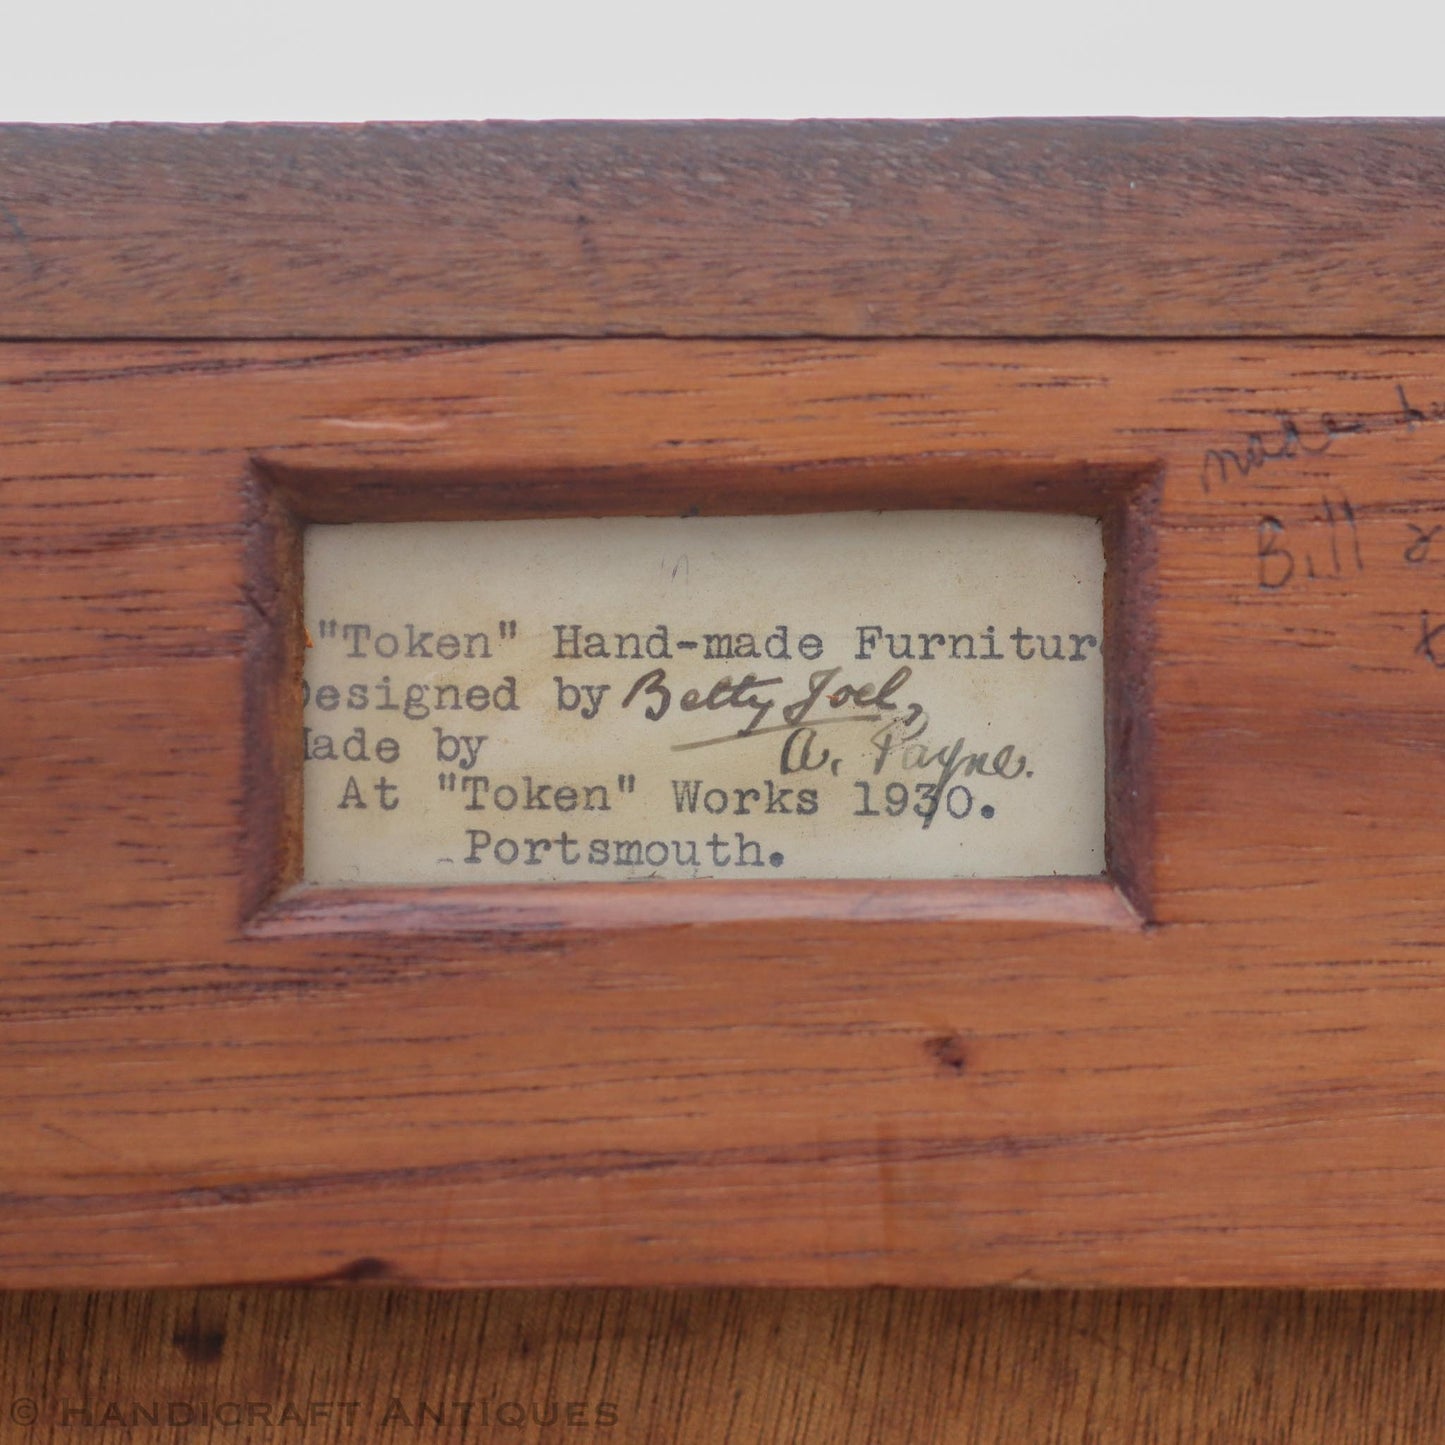 "Token" Hand-made Furnitur
Designed by Betty Joel,
Made by A. Payne.
At "Token" Works 1930.
Portsmouth.
made by
Bill &
© Handicraft Antiques